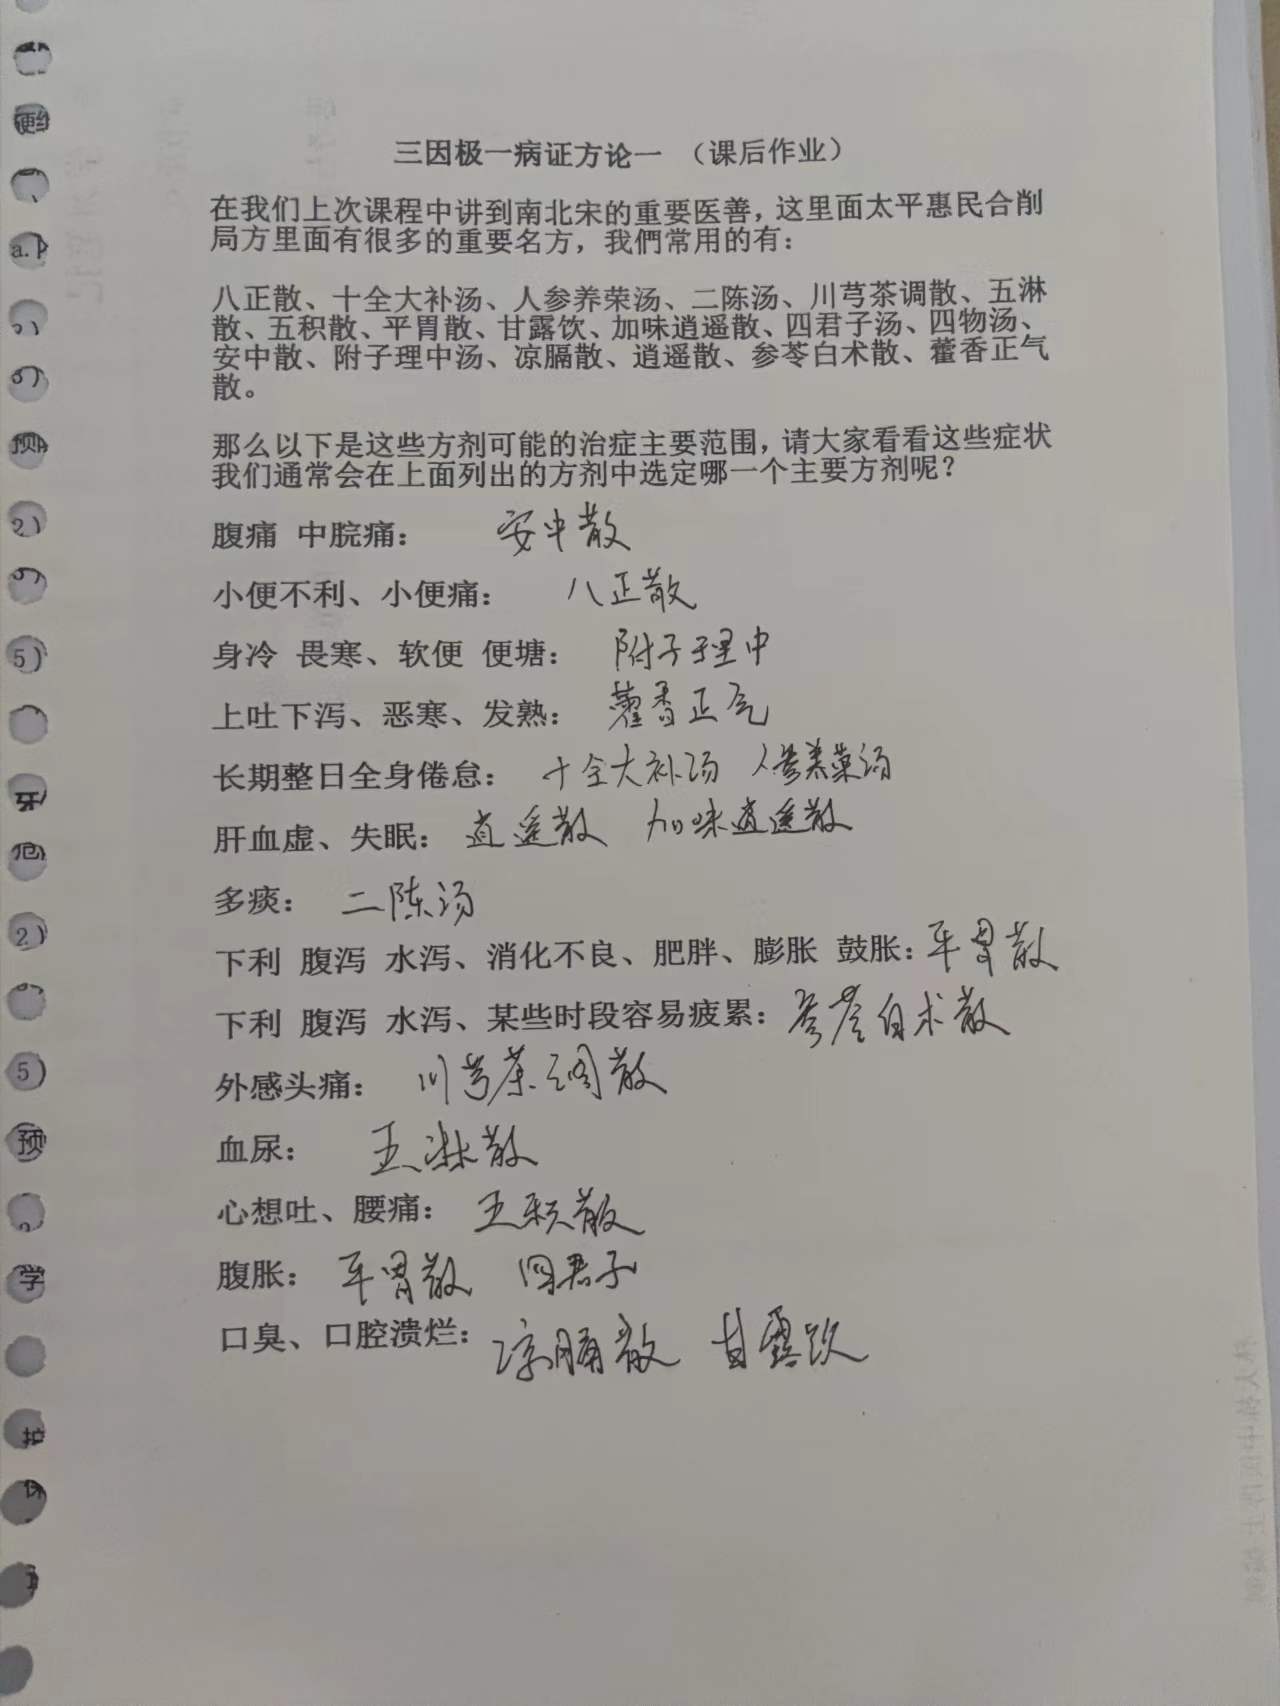 三因极一病证方论一 （课后作业）
在我们上次课程中讲到南北宋的重要医善，这里面太平惠民合削
局方里面有很多的重要名方，我們常用的有：
八正散、十全大补汤、人参养荣汤、二陈汤、川芎茶调散、五淋
散、五积散、平胃散、甘露饮、加味逍遥散、四君子汤、四物汤、
安中散、附子理中汤、凉膈散、逍遥散、参苓白术散、藿香正气
散。
那么以下是这些方剂可能的治症主要范围，请大家看看这些症状
我们通常会在上面列出的方剂中选定哪一个主要方剂呢？
腹痛 中脘痛： 安中散
小便不利、小便痛： 八正散
身冷 畏寒、软便 便塘： 附子理中
上吐下泻、恶寒、发熟： 藿香正气
长期整日全身倦怠： 十全大补汤 人参养荣汤
肝血虚、失眠： 逍遥散 加味逍遥散
多痰： 二陈汤
下利 腹泻 水泻、消化不良、肥胖、膨胀 鼓胀：平胃散
下利 腹泻 水泻、某些时段容易疲累：参苓白术散
外感头痛： 川芎茶调散
血尿： 五淋散
心想吐、腰痛： 五积散
腹胀： 平胃散 四君子
口臭、口腔溃烂： 凉膈散 甘露饮
便
a.
预
2）
5）
牙
2）
5）
预
学
护